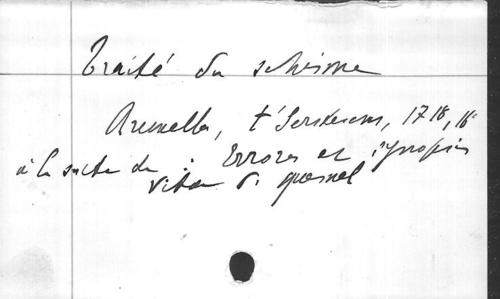 Traité du schisme
Bruxelles, t'Serstevens, 1718, 16°
à la suite de : Errores et synopsis
vitae P. Quesnel